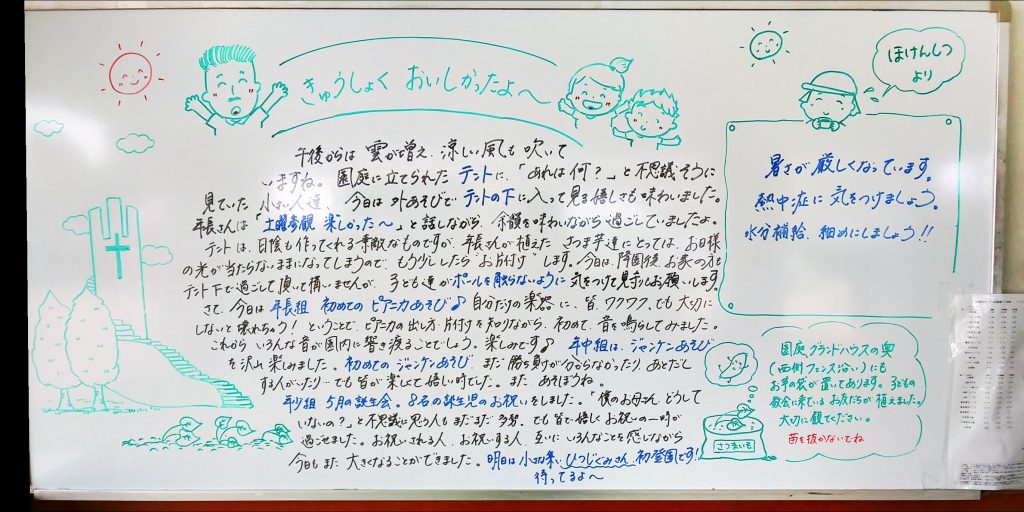 きゅうしょく おいしかったよ〜
午後からは 雲が増え、涼しい風も 吹いて
いますね。 園庭に立てられた テントに、「あれは何？」と不思議そうに
見ていた 小さい人達、今日は 外あそびで テントの下に入って見る嬉しさも味わいました。
年長さんは「土曜参観 楽しかった〜」と話しながら、余韻を味わいながら 過ごしていましたよ。
テントは、日陰も作ってくれる素敵なものですが、年長さんが植えた さつま芋達にとっては、お日様
の光が当たらないままになってしまうので、もう少ししたら"お片付け"します。今日は、降園後 お家の方も
テント下で過ごして頂いて構いませんが、子ども達がポールを触らないように気をつけて見守りお願いします。
さて、今日は 年長組 初めての ピアニカあそび♪ 自分だけの楽器に、皆、ワクワク、でも大切に
しないと壊れちゃう！ ということで、ピアニカの出し方、片付けを知りながら、初めて、音を鳴らしてみました。
これから いろんな音が園内に響き渡ることでしょう。楽しみです♪ 年中組は、ジャンケンあそび
を沢山楽しみました。初めての ジャンケンあそび、まだ 勝ち負けが分からなかったり、あとだし
する人がいたり…でも皆が楽しくて嬉しい時でした。また、あそぼうね。
年少組 5月の誕生会。8名の誕生児のお祝いをしました。「僕のお母さん、どうして
いないの？」と不思議に思う人もまだまだ多勢、でも皆で嬉しくお祝いの一時が
過ごせました。お祝いされる人、お祝いする人、互いに いろんなことを感じながら
今日もまた 大きくなることができました。明日は小さい ひつじぐみさん 初登園です！
待ってるよ〜
ほけんしつ
より
暑さが厳しくなっています。
熱中症に気をつけましょう。
水分補給、細めにしましょう!!
園庭、グランドハウスの奥
(西側フェンス沿い)にも
お芋の袋が置いてあります。子どもの
教会に来ているお友だちが植えました。
大切に観てください。
苗を抜かないでね
さつまいも